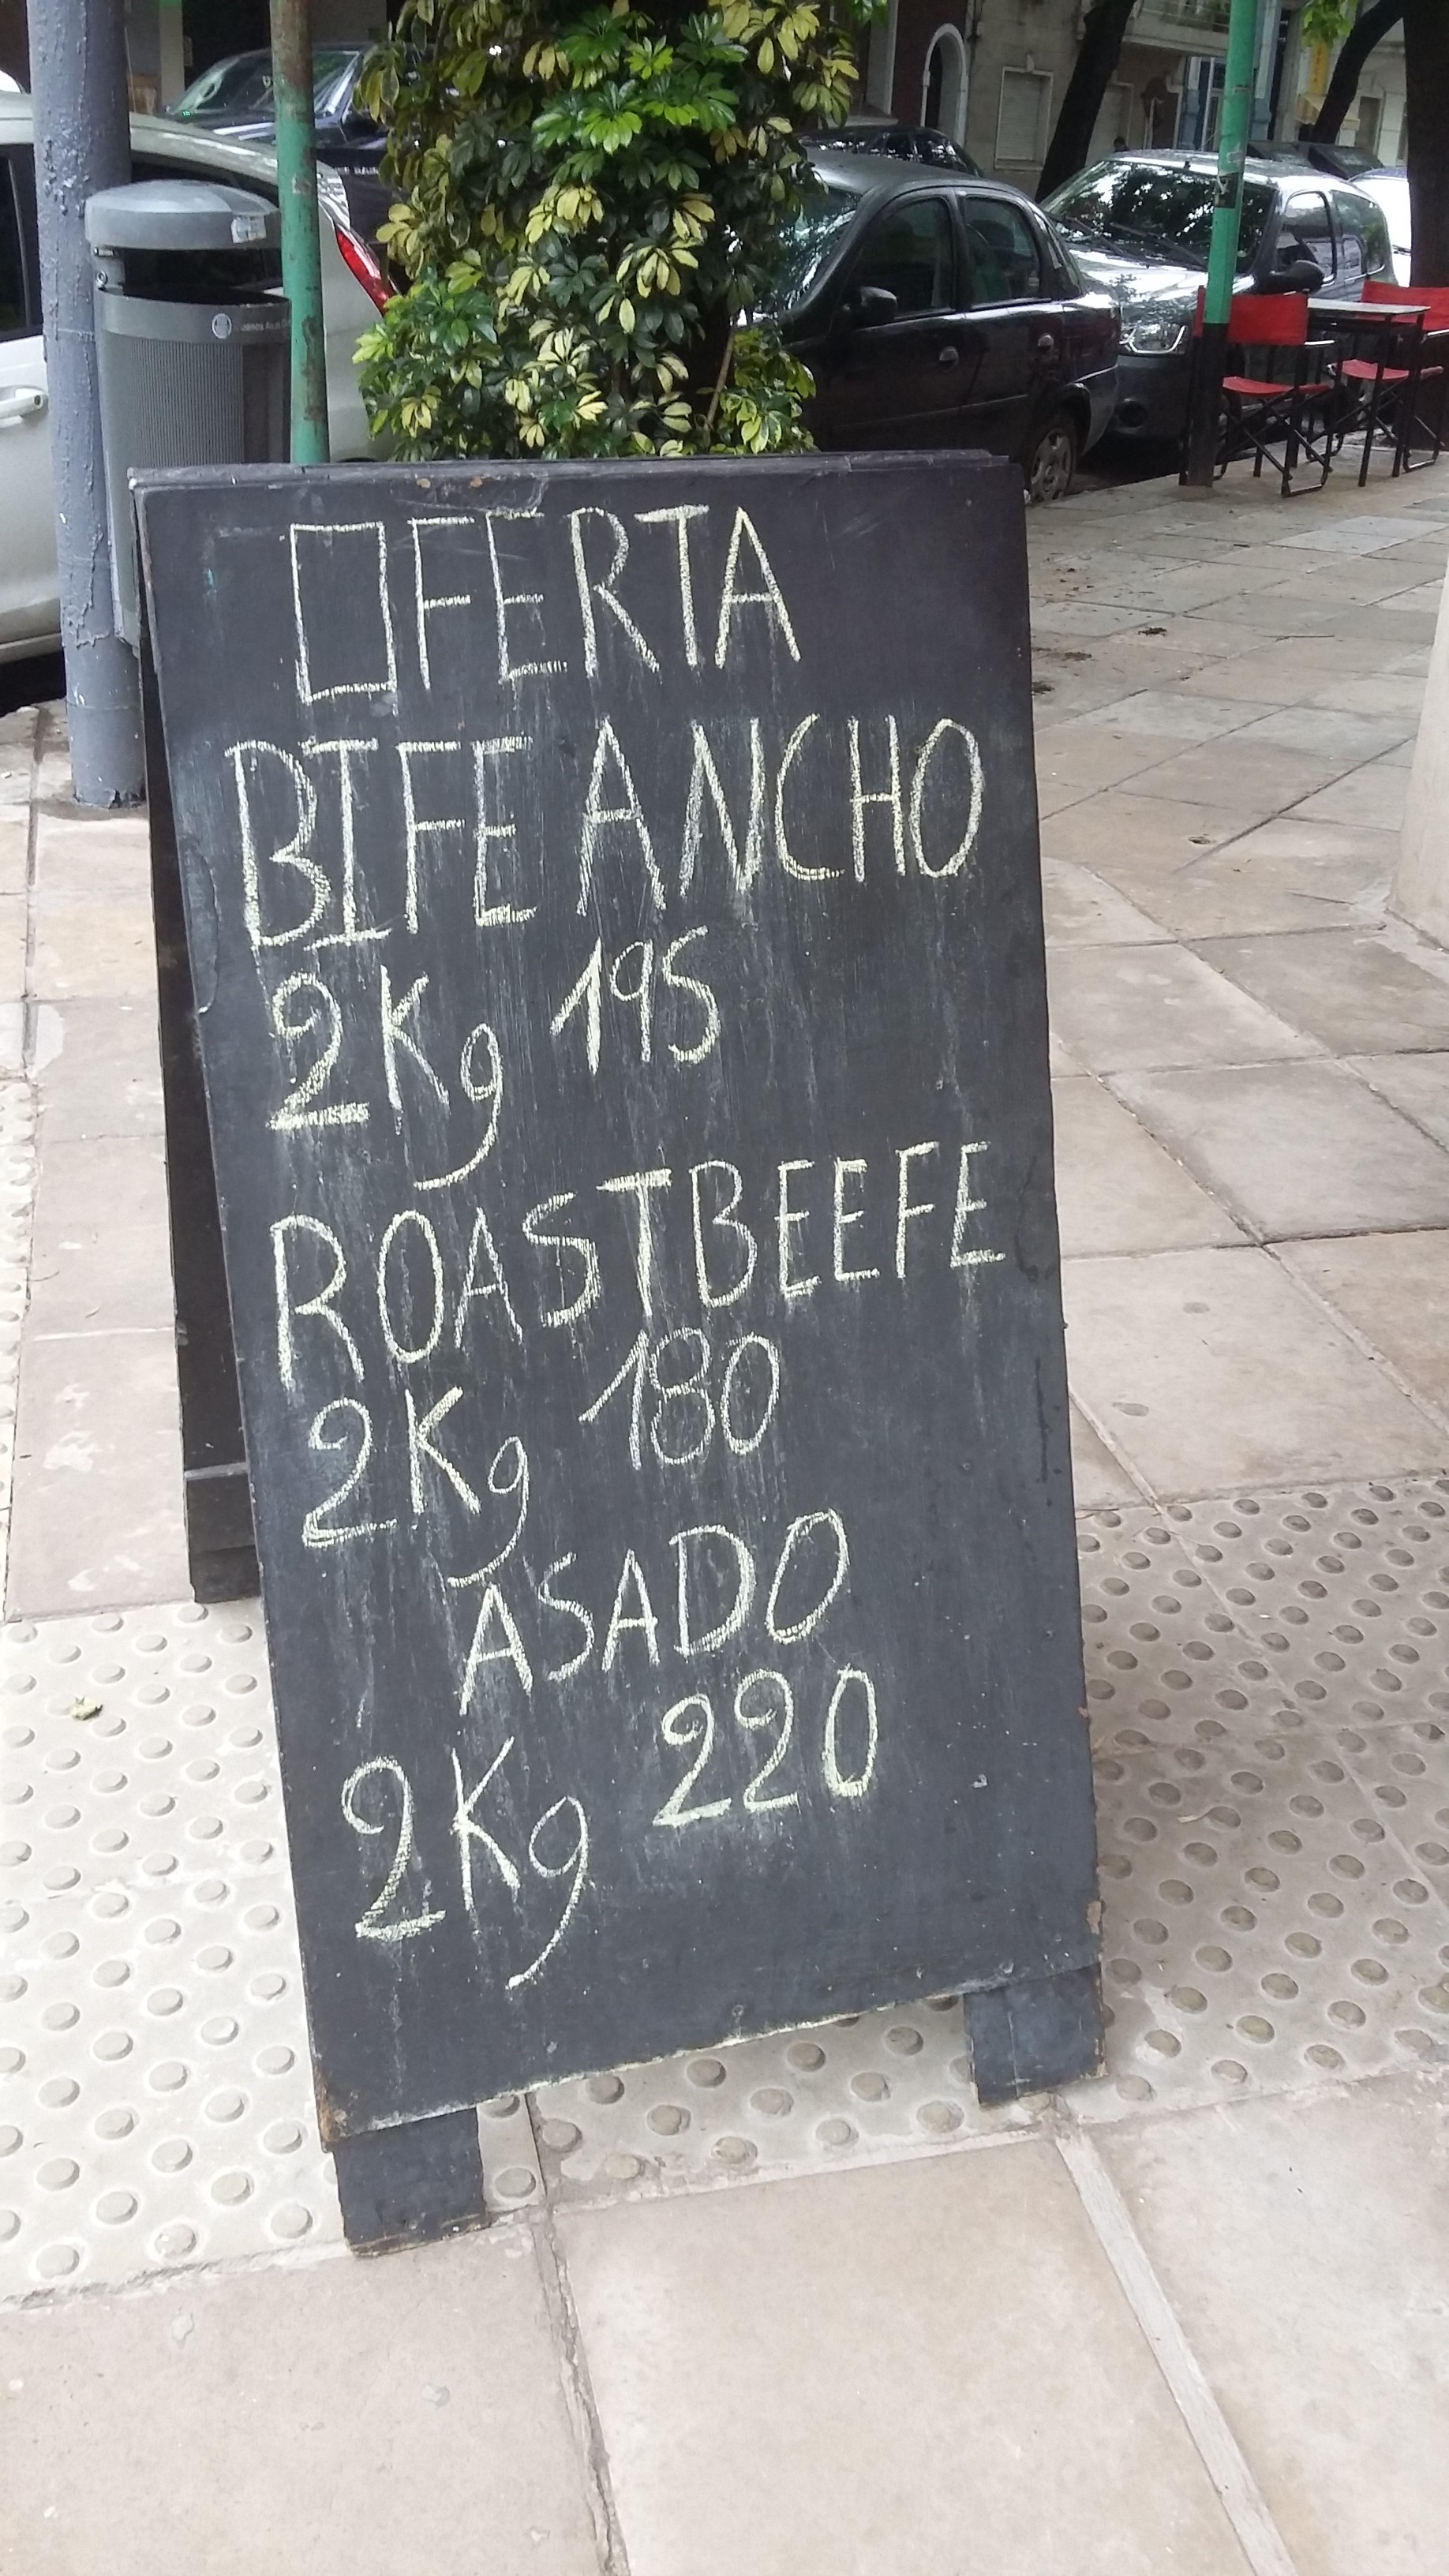 OFERTA
BIFE ANCHO
2Kg 195
ROASTBEEFE
2Kg 180
ASADO
2Kg 220